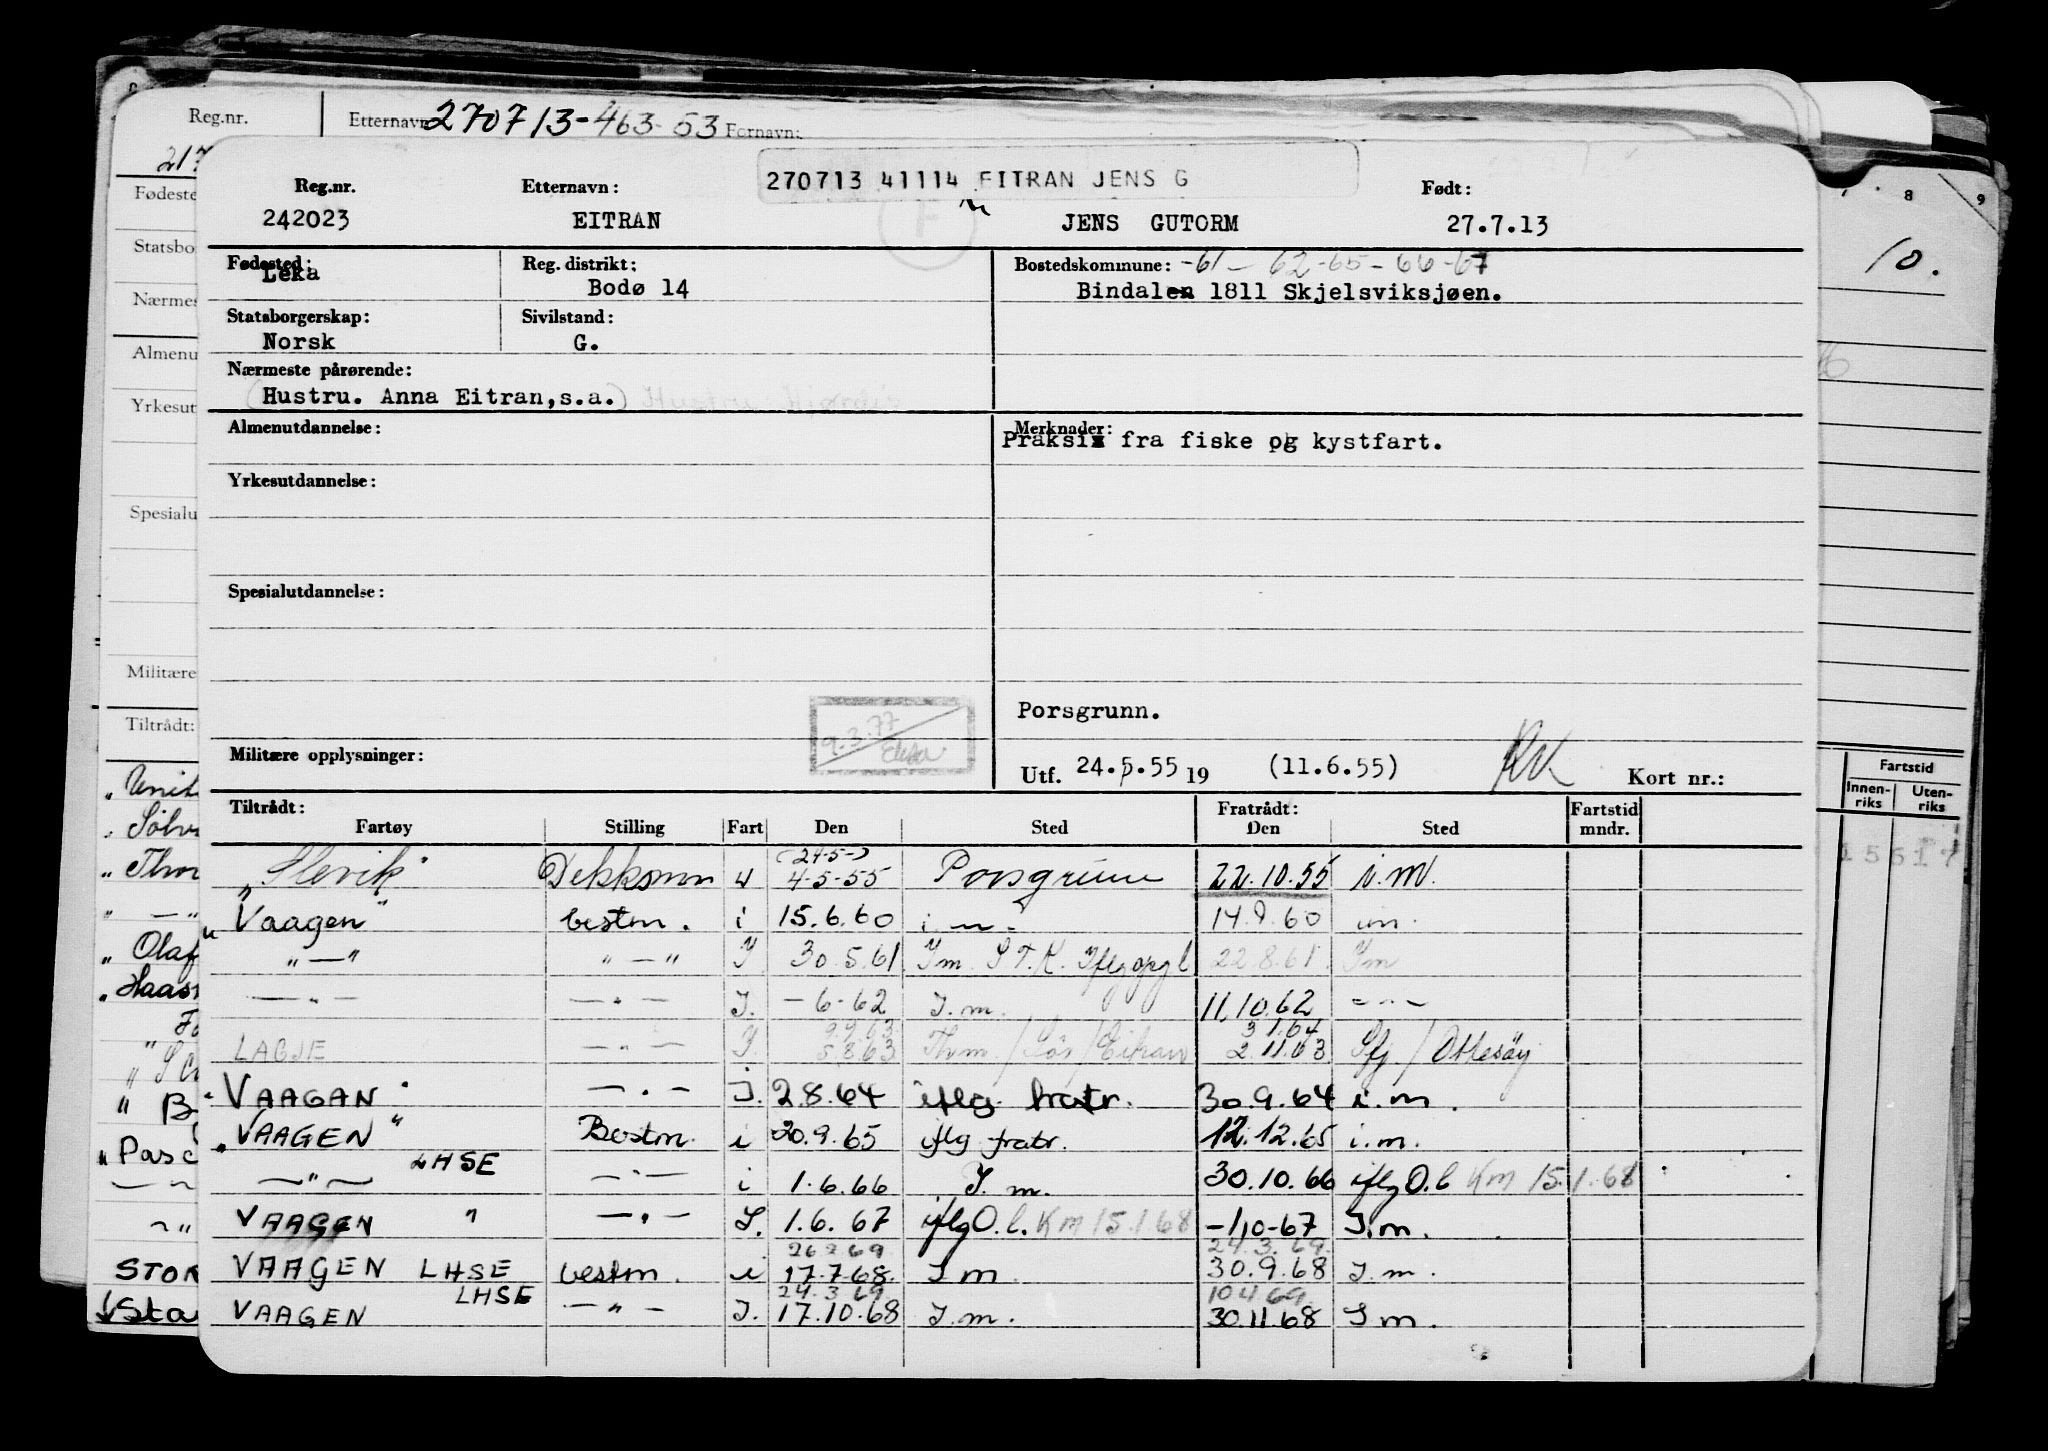 Reg.nr. Etternavn: 270713-463-53 Fornavn:
270713 41114 EITRAN JENS G
Reg.nr. Etternavn: Født:
242023 EITRAN JENS GUTORM 27.7.13
Fødested: Reg. distrikt: Bostedskommune: -61-62-65-66-67
Leka Bodø 14 Bindalen 1811 Skjelsviksjøen.
Statsborgerskap: Sivilstand:
Norsk G.
Nærmeste pårørende:
(Hustru. Anna Eitran,s.a.) Hustru: Hjørdis
Almenutdannelse: Merknader:
Praksis fra fiske og kystfart.
Yrkesutdannelse:
Spesialutdannelse:
Porsgrunn.
9.3.77
Militære opplysninger: Utf. 24.5.55 19 (11.6.55) Kort nr.:
Tiltrådt: Fratrådt: Fartstid
Fartøy Stilling Fart Den Sted Den Sted mndr.
(24-5-)
"Slevik" Dekksmn 4-5-55 Porsgrunn 22.10.55 i.m.
"Vaagen" bestm. i 15.6.60 i.m. 14.9.60 i.m.
"—" "—" I 30.5.61 I.m. 22.8.61 I m
—"— —"— I. -6-62 I.m. 11.10.62 —"—
9.9.63 3.1.64
LAGJE —"— I 5.8.63 2.11.63 / Ottesøy
"VAAGAN" —"— I. 2.8.64 iflg. fratr. 30.9.64 i.m.
"VAAGEN" Bestm. i 20.9.65 iflg fratr. 12.12.65 i.m.
—"— LHSE —"— i 1.6.66 I.m. 30.10.66 iflg O.l KM 15.1.68
VAAGEN " —"— I. 1.6.67 iflg O.l. KM 15.1.68 -1.10-67 I.m.
26.2.69 24.3.69
VAAGEN LHSE bestm. i 17.7.68. I m 30.9.68 I.m.
24.3.69 10.4.69
VAAGEN LHSE —"— I. 17.10.68 I.m. 30.11.68 I m.
Statsbo
Almenu
Yrkesut
Spesialu
Militære
Tiltrådt:
STOR
8 9
10.
Fartstid
Innen-riks Uten-riks